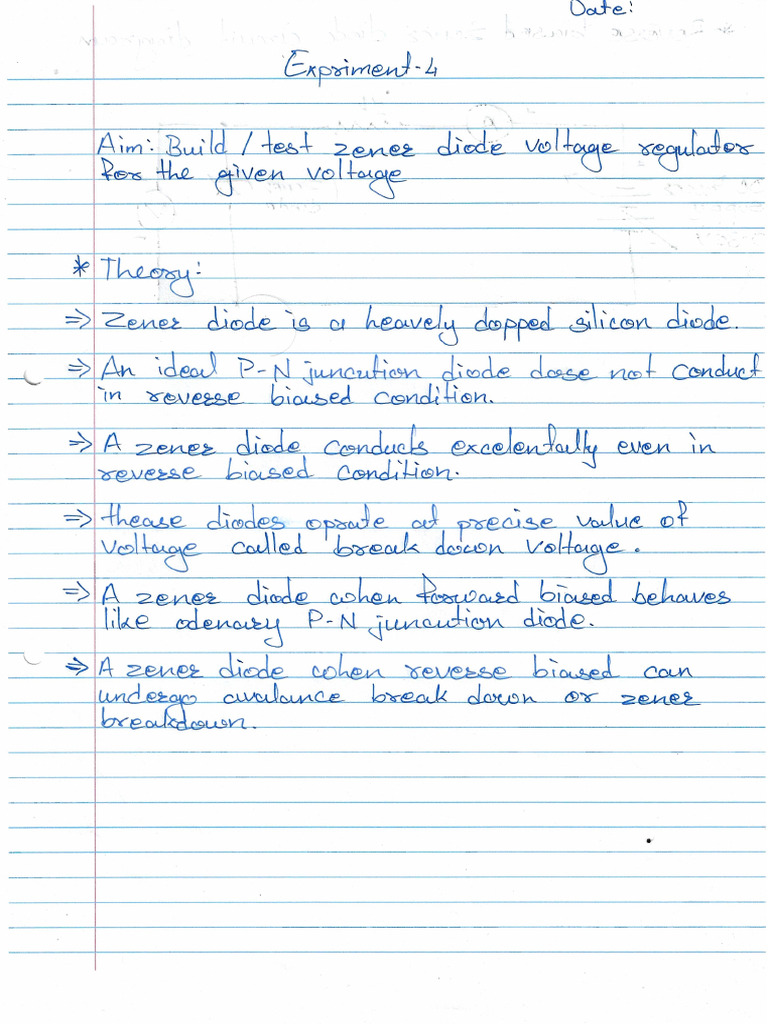 Date:
Expriment-4
Aim: Build / test zener diode voltage regulator
for the given voltage
* Theory:
⇒ Zener diode is a heavely dopped silicon diode.
⇒ An ideal P-N juncution diode dose not conduct
in reverse biased condition.
⇒ A zener diode conducts excelentally even in
reverse biased condition.
⇒ thease diodes oprate at precise value of
voltage called break down voltage.
⇒ A zener diode cohen forward biased behaves
like odenary P-N juncution diode.
⇒ A zener diode cohen reverse biased can
undergo avalance break down or zener
breakdown.